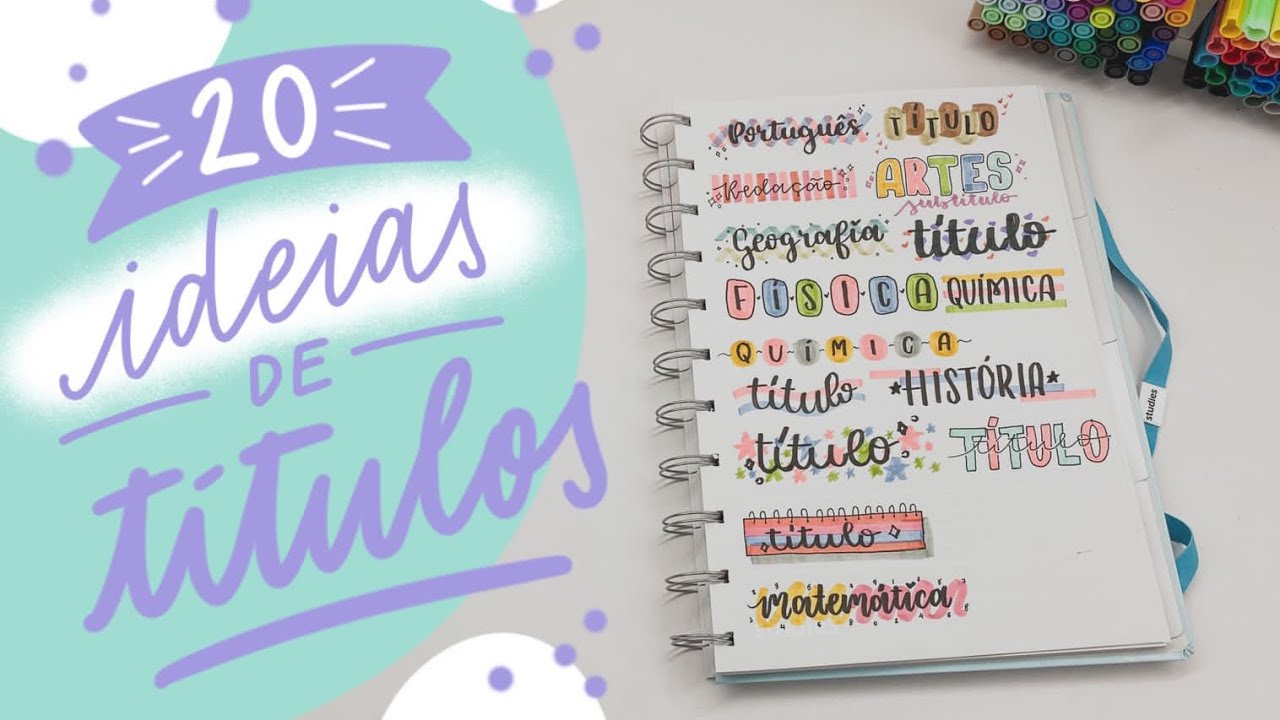 20
ideias
DE
títulos
Português TÍTULO
Redação ARTES
subtítulo
Geografía título
FÍSICA QUÍMICA
QUÍMICA
título HISTÓRIA
título TÍTULO
título
título
matemática
studies